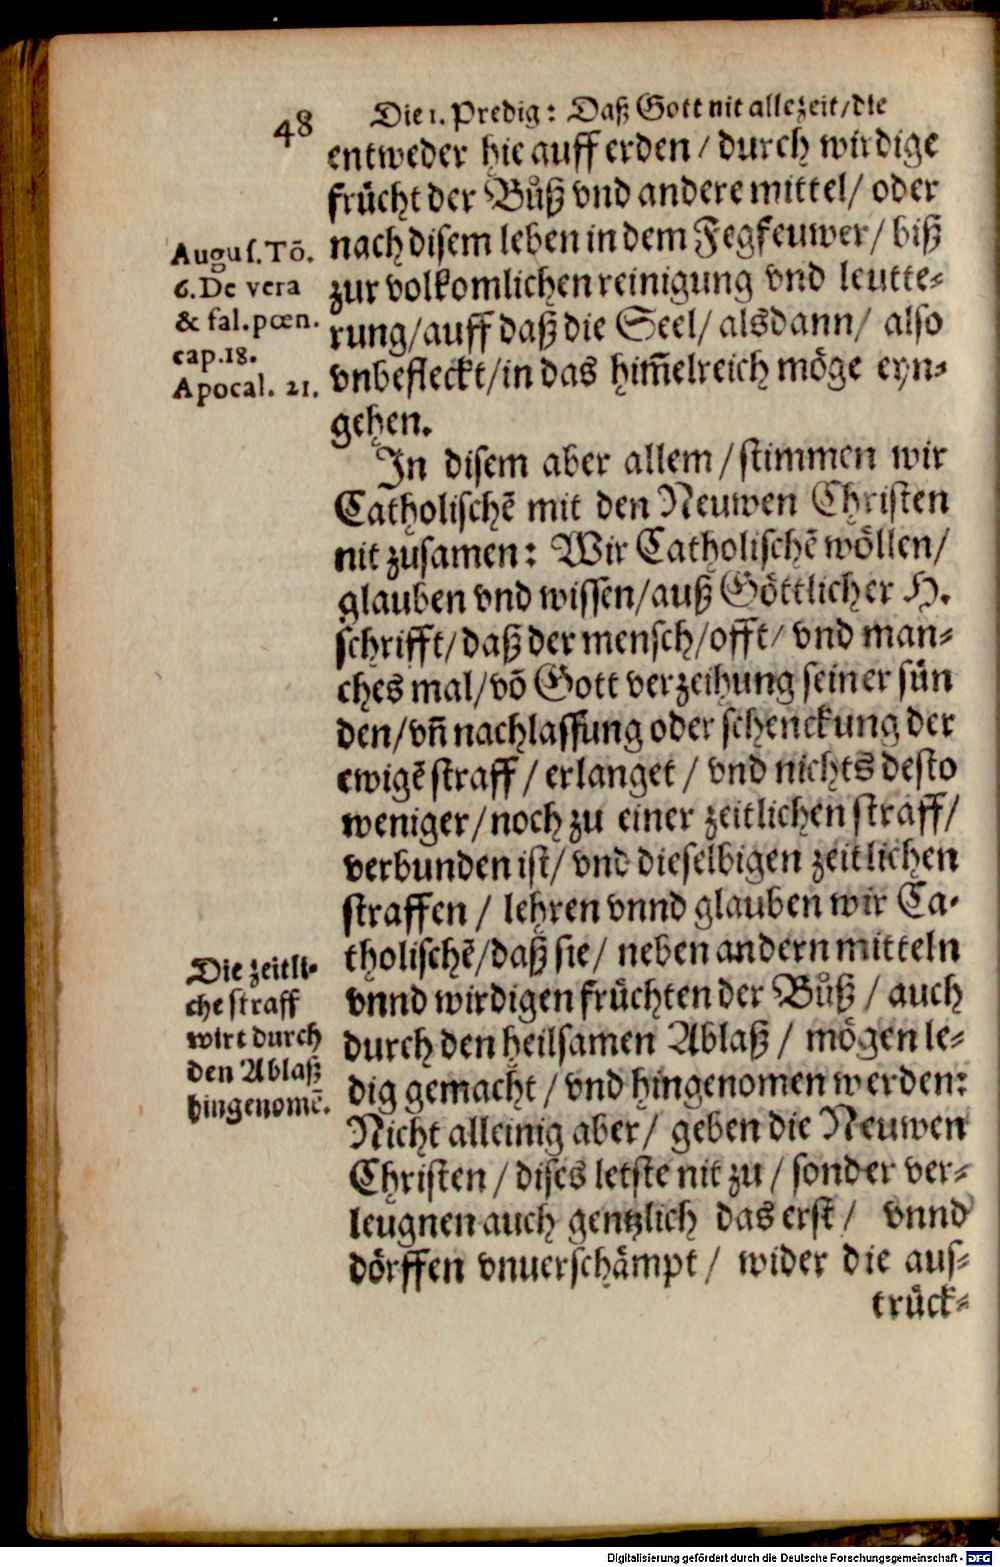 48 Die 1. Predig: Daß Gott nit allezeit/die
entweder hie auff erden/durch wirdige
frücht der Bůß vnd andere mittel/ oder
nach disem leben in dem Fegfeuwer/ biß
zur volkomlichen reinigung vnd leutte⸗
rung/auff daß die Seel/ alsdann/ also
vnbefleckt/in das him̃elreich möge eyn⸗
gehen.
Augus. Tõ.
6. De vera
& fal. pœn.
cap. 18.
Apocal. 21.
In disem aber allem/stimmen wir
Catholischẽ mit den Neuwen Christen
nit zusamen: Wir Catholischẽ wöllen/
glauben vnd wissen/auß Göttlicher H.
schrifft/daß der mensch/offt/ vnd man⸗
ches mal/võ Gott verzeihung seiner sün
den/vñ nachlassung oder schenckung der
ewigẽ straff/ erlanget/ vnd nichts desto
weniger/noch zu einer zeitlichen straff/
verbunden ist/ vnd dieselbigen zeitlichen
straffen/ lehren vnnd glauben wir Ca⸗
tholischẽ/daß sie/ neben andern mitteln
vnnd wirdigen früchten der Bůß/ auch
durch den heilsamen Ablaß/ mögen le⸗
dig gemacht/ vnd hingenomen werden:
Nicht alleinig aber/ geben die Neuwen
Christen/ dises letste nit zu/ sonder ver⸗
leugnen auch gentzlich das erst/ vnnd
dörffen vnuerschämpt/ wider die aus⸗
trück⸗
Die zeitli⸗
che straff
wirt durch
den Ablaß
hingenomẽ.
Digitalisierung gefördert durch die Deutsche Forschungsgemeinschaft - DFG